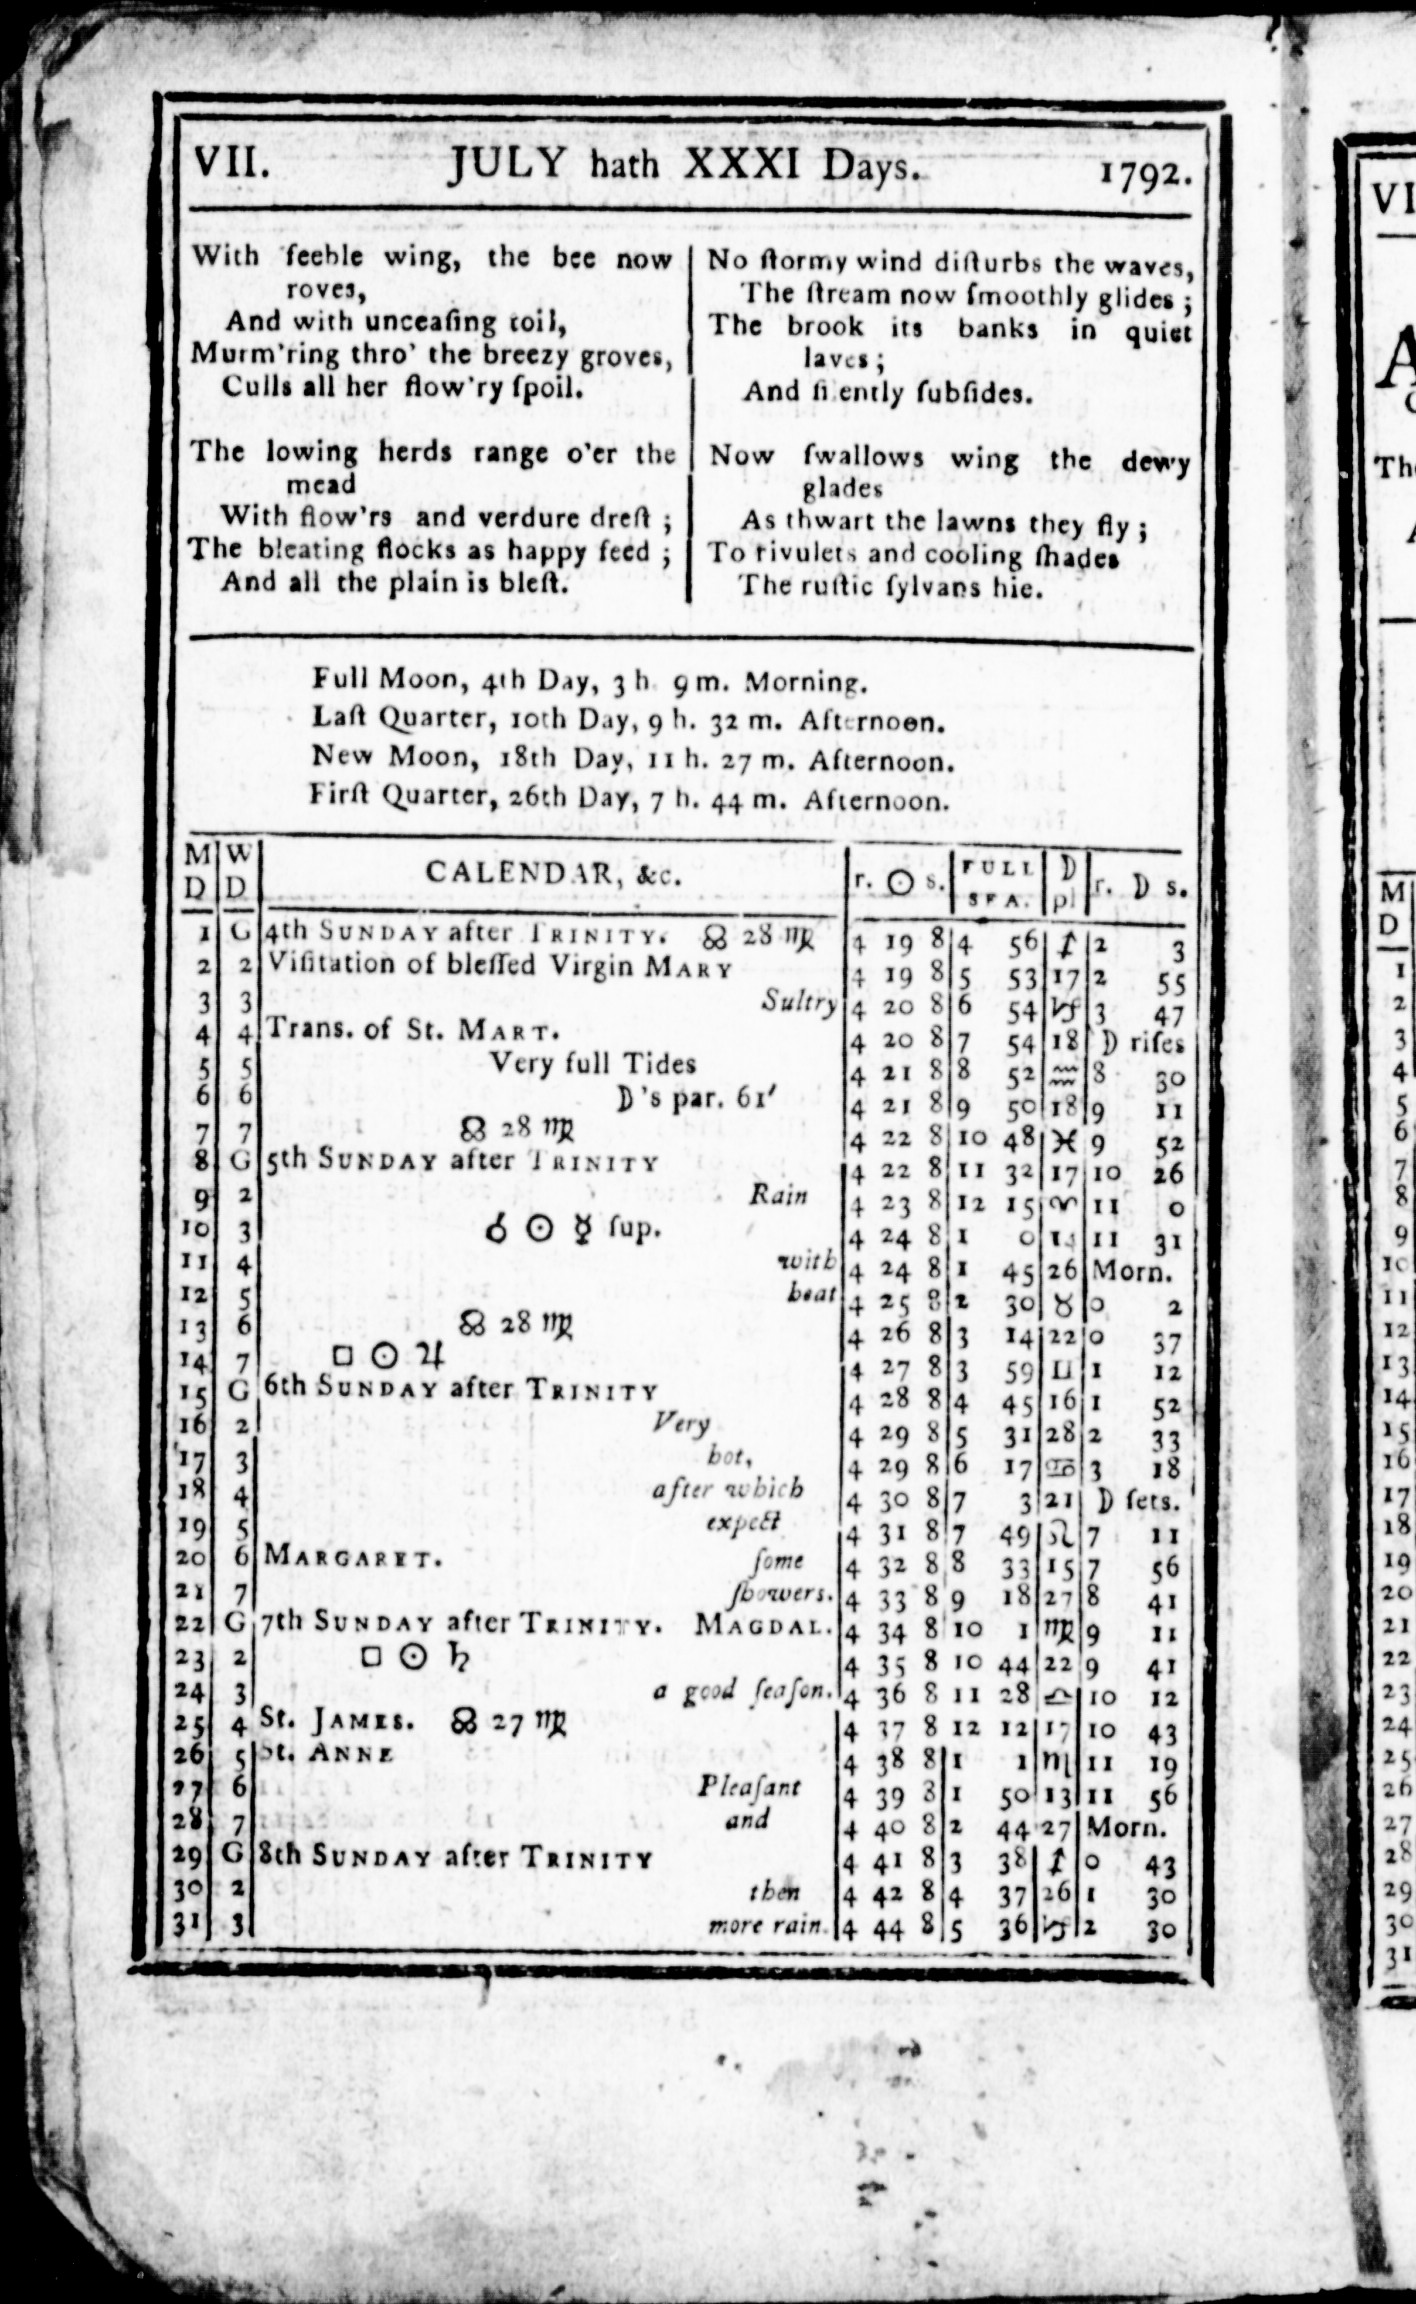 VII. JULY hath XXXI Days. 1792.
With feeble wing, the bee now
roves,
And with unceaſing toil,
Murm'ring thro' the breezy groves,
Culls all her flow'ry ſpoil.
The lowing herds range o'er the
mead
With flow'rs and verdure dreſt ;
The bleating flocks as happy feed ;
And all the plain is bleſt.
No ſtormy wind diſturbs the waves,
The ſtream now ſmoothly glides ;
The brook its banks in quiet
laves ;
And ſi ently ſubſides.
Now ſwallows wing the dewy
glades
As thwart the lawns they fly ;
To rivulets and cooling ſhades
The ruſtic ſylvans hie.
Full Moon, 4th Day, 3 h. 9 m. Morning.
Laſt Quarter, 10th Day, 9 h. 32 m. Afternoon.
New Moon, 18th Day, 11 h. 27 m. Afternoon.
Firſt Quarter, 26th Day, 7 h. 44 m. Afternoon.
M D W D CALENDAR, &c. r. ☉ s. FULL SEA. ☽ pl r. ☽ s.
1 G 4th SUNDAY after TRINITY. ☊ 28 ♍ 4 19 8 4 56 ♐ 2 3
2 2 Viſitation of bleſſed Virgin MARY 4 19 8 5 53 17 2 55
3 3 Sultry 4 20 8 6 54 ♑ 3 47
4 4 Trans. of St. MART. 4 20 8 7 54 18 ☽ riſes
5 5 Very full Tides 4 21 8 8 52 ♒ 8 30
6 6 ☽'s par. 61' 4 21 8 9 50 18 9 11
7 7 ☊ 28 ♍ 4 22 8 10 48 ♓ 9 52
8 G 5th SUNDAY after TRINITY 4 22 8 11 32 17 10 26
9 2 Rain 4 23 8 12 15 ♈ 11 0
10 3 ☌ ☉ ☿ ſup. 4 24 8 1 0 14 11 31
11 4 with 4 24 8 1 45 26 Morn.
12 5 heat 4 25 8 2 30 ♉ 0 2
13 6 ☊ 28 ♍ 4 26 8 3 14 22 0 37
14 7 □ ☉ ♃ 4 27 8 3 59 ♊ 1 12
15 G 6th SUNDAY after TRINITY 4 28 8 4 45 16 1 52
16 2 Very 4 29 8 5 31 28 2 33
17 3 hot, 4 29 8 6 17 ♋ 3 18
18 4 after which 4 30 8 7 3 21 ☽ ſets.
19 5 expect 4 31 8 7 49 ♌ 7 11
20 6 MARGARET. ſome 4 32 8 8 33 15 7 56
21 7 ſhowers. 4 33 8 9 18 27 8 41
22 G 7th SUNDAY after TRINITY. MAGDAL. 4 34 8 10 1 ♍ 9 11
23 2 □ ☉ ♄ 4 35 8 10 44 22 9 41
24 3 a good ſeaſon. 4 36 8 11 28 ♎ 10 12
25 4 St. JAMES. ☊ 27 ♍ 4 37 8 12 12 17 10 43
26 5 St. ANNE 4 38 8 1 1 ♏ 11 19
27 6 Pleaſant 4 39 8 1 50 13 11 56
28 7 and 4 40 8 2 44 27 Morn.
29 G 8th SUNDAY after TRINITY 4 41 8 3 38 ♐ 0 43
30 2 then 4 42 8 4 37 26 1 30
31 3 more rain. 4 44 8 5 36 ♑ 2 30
VI
A
Th
M
D
1
2
3
4
5
6
7
8
9
10
11
12
13
14
15
16
17
18
19
20
21
22
23
24
25
26
27
28
29
30
31